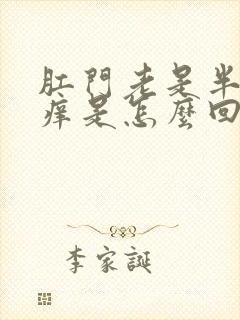 肛門老是半
痒是怎麼回
李家誕